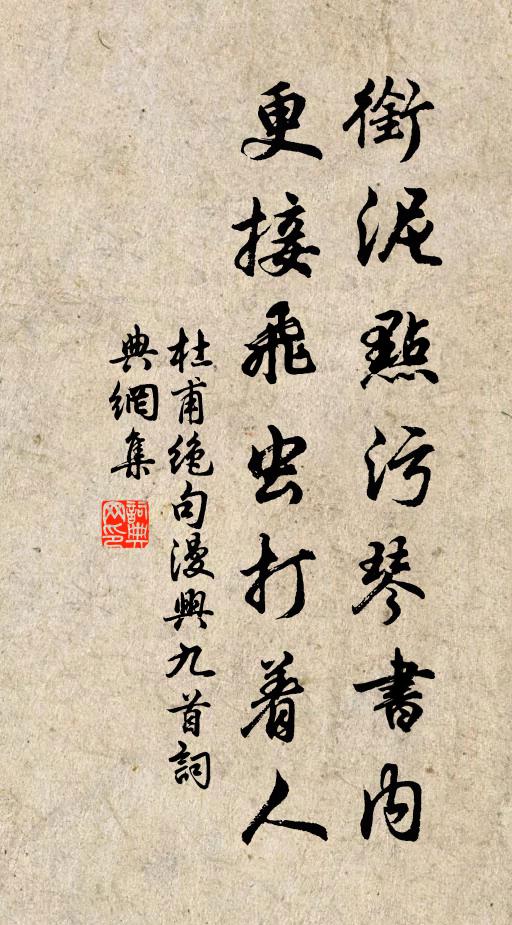 銜泥點污琴書内
更接飛虫打着人
杜甫絶句漫興九首詞
典網集
詞典网印